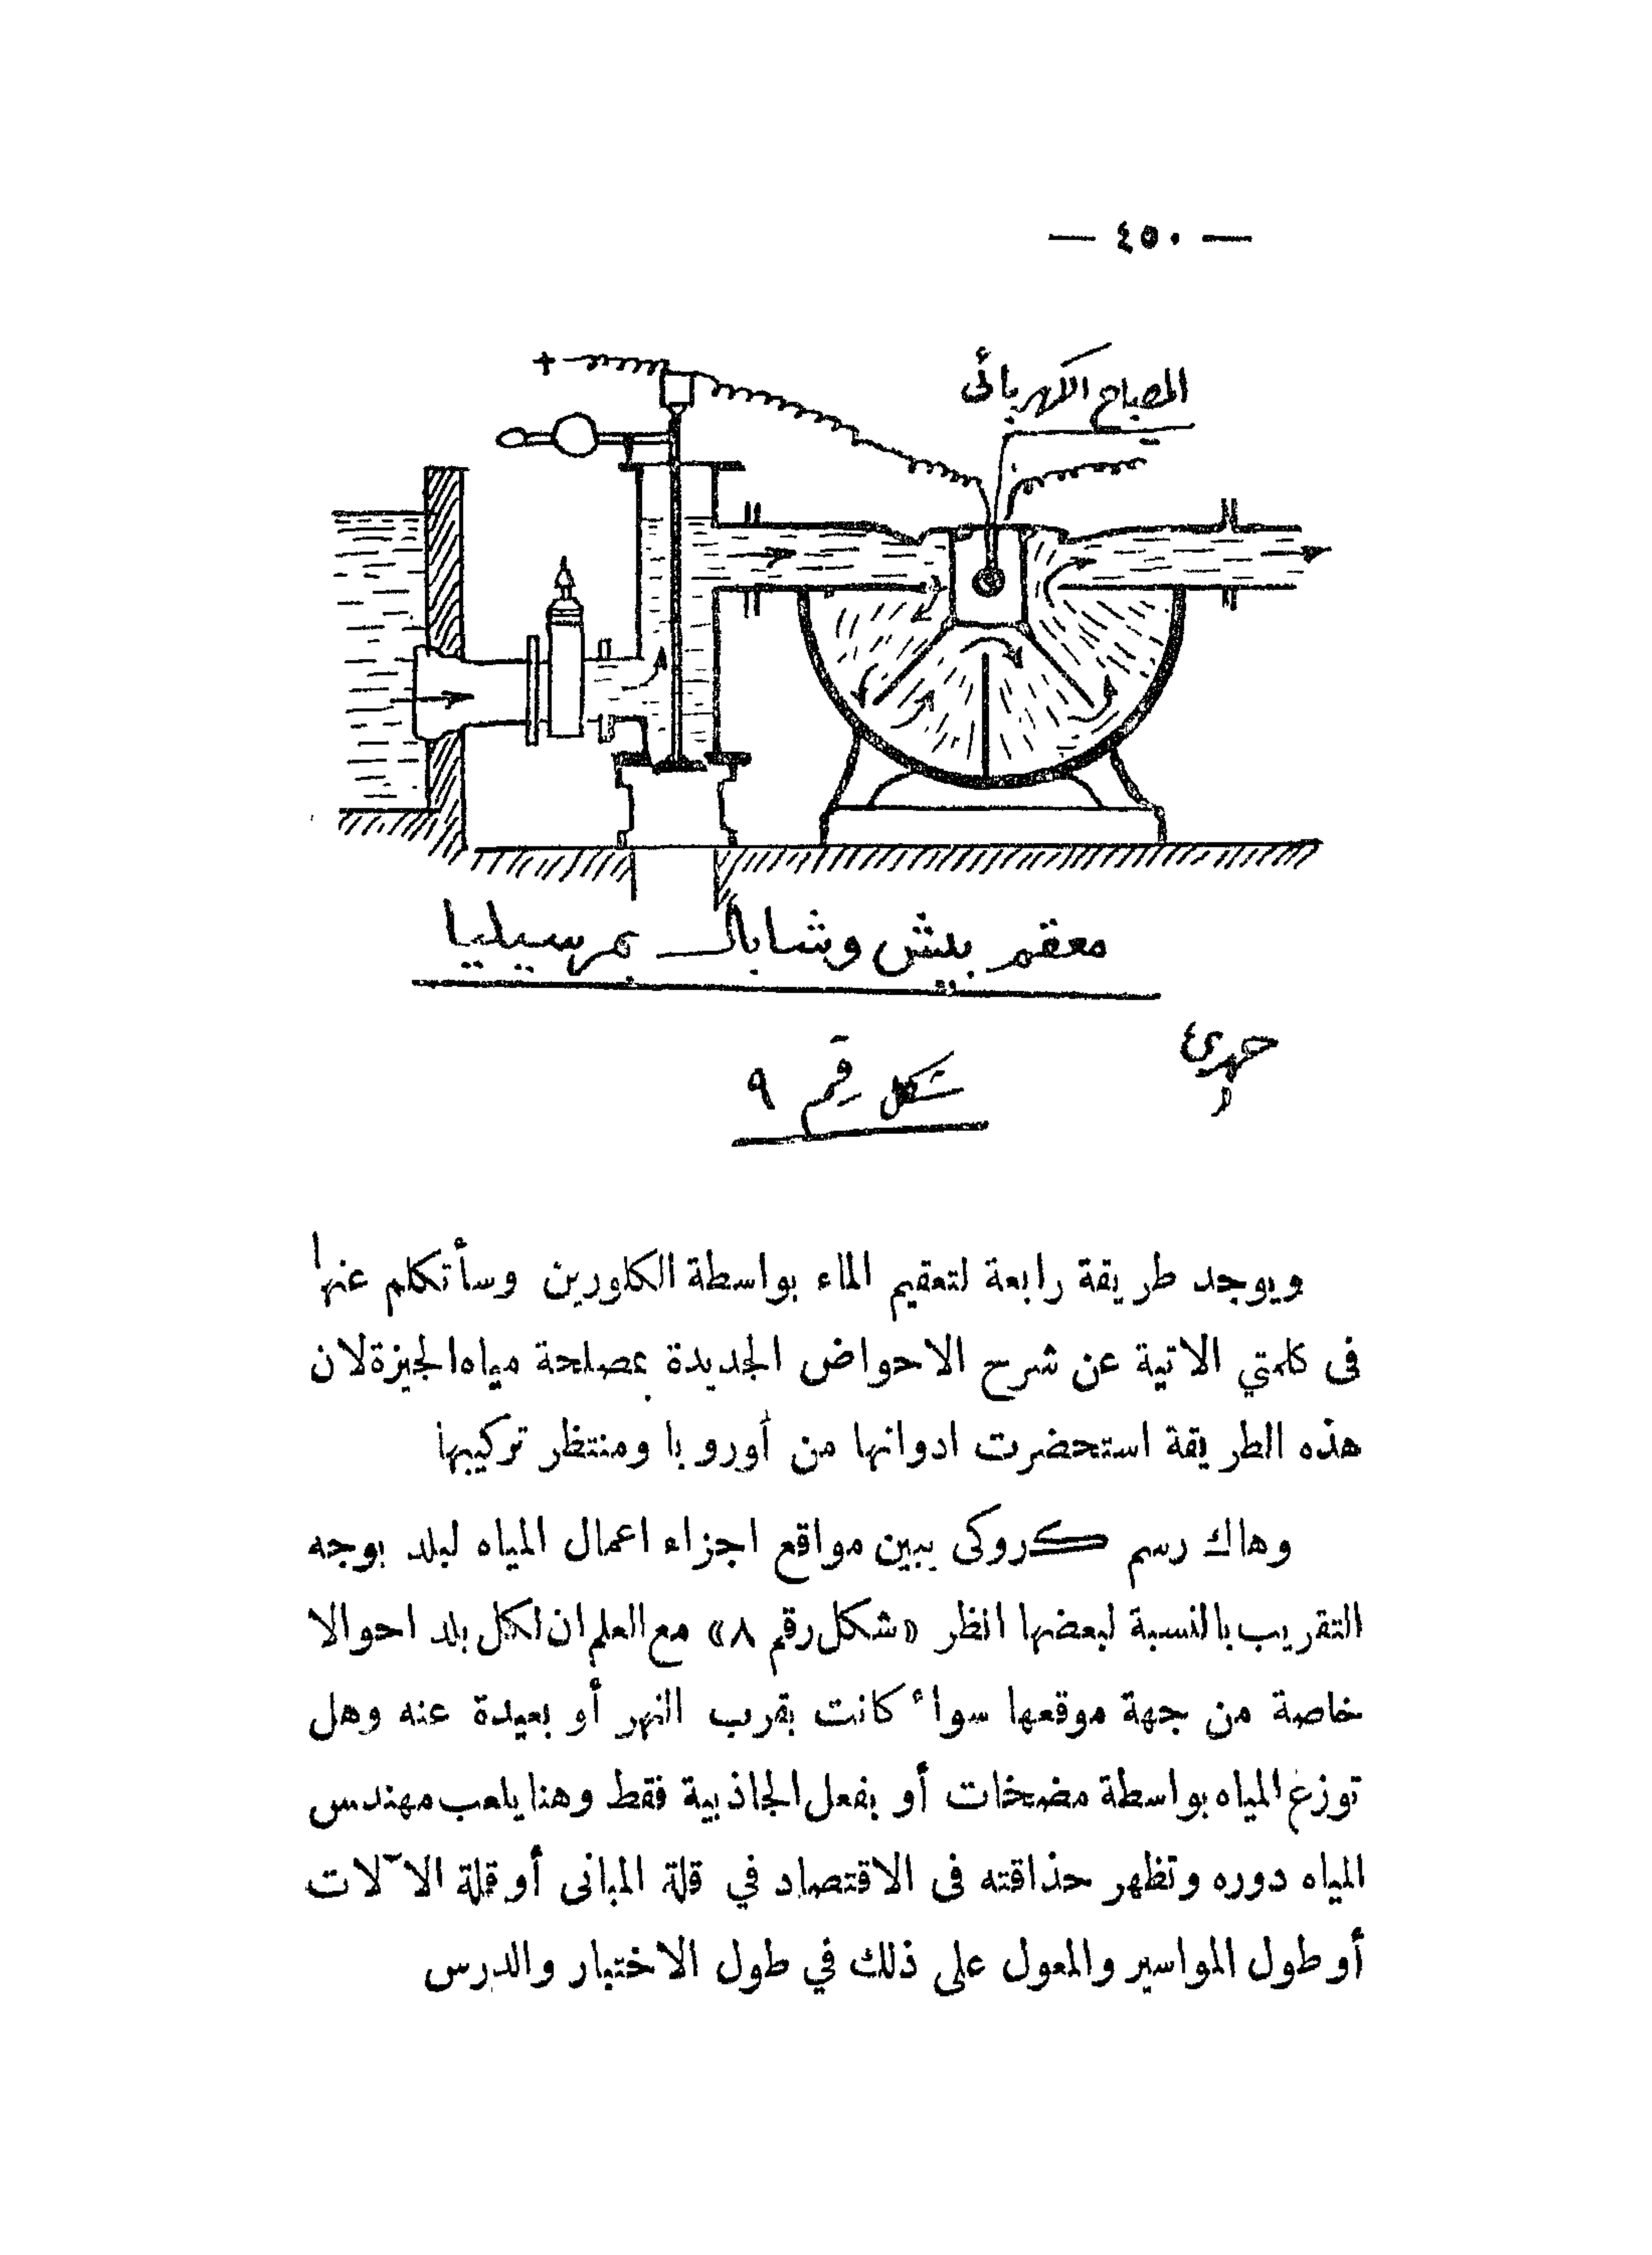 — ٤٥٠ —
المصباح الكهربائى
+
معقم بيش وشابال بمرسيليا
شكل رقم ٩
ويوجد طريقة رابعة لتعقيم الماء بواسطة الكلورين وسأتكلم عنها
فى كلمتي الاتية عن شرح الاحواض الجديدة بمصلحة مياه الجيزة لان
هذه الطريقة استحضرت ادواتها من أوروبا ومنتظر تركيبها
وهاك رسم كروكى يبين مواقع اجزاء اعمال المياه لبلد بوجه
التقريب بالنسبة لبعضها انظر «شكل رقم ٨» مع العلم ان لكل بلد احوالا
خاصة من جهة موقعها سواء كانت بقرب النهر أو بعيدة عنه وهل
توزع المياه بواسطة مضخات أو بفعل الجاذبية فقط وهنا يلعب مهندس
المياه دوره وتظهر حذاقته فى الاقتصاد في قلة المبانى أو قلة الآلات
أو طول المواسير والمعول على ذلك في طول الاختبار والدرس